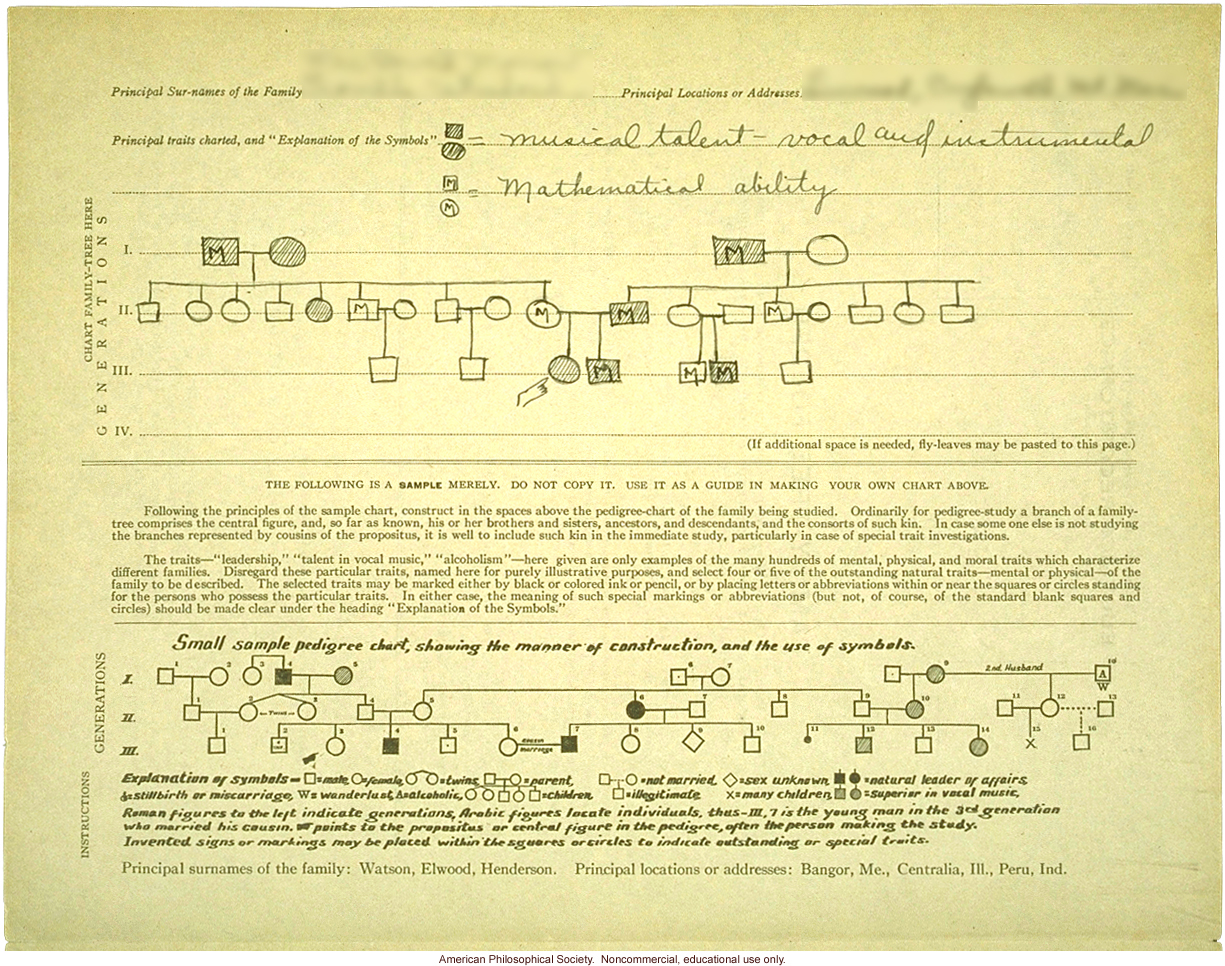 Principal Sur-names of the Family
Principal Locations or Addresses
Principal traits charted, and "Explanation of the Symbols" = musical talent - vocal and instrumental
M = Mathematical ability
M
CHART FAMILY-TREE HERE
GENERATIONS
I. M M
II. M M M M
III. M M M
IV.
(If additional space is needed, fly-leaves may be pasted to this page.)
THE FOLLOWING IS A SAMPLE MERELY. DO NOT COPY IT. USE IT AS A GUIDE IN MAKING YOUR OWN CHART ABOVE.
Following the principles of the sample chart, construct in the spaces above the pedigree-chart of the family being studied. Ordinarily for pedigree-study a branch of a family-
tree comprises the central figure, and, so far as known, his or her brothers and sisters, ancestors, and descendants, and the consorts of such kin. In case some one else is not studying
the branches represented by cousins of the propositus, it is well to include such kin in the immediate study, particularly in case of special trait investigations.
The traits—"leadership," "talent in vocal music," "alcoholism"—here given are only examples of the many hundreds of mental, physical, and moral traits which characterize
different families. Disregard these particular traits, named here for purely illustrative purposes, and select four or five of the outstanding natural traits—mental or physical—of the
family to be described. The selected traits may be marked either by black or colored ink or pencil, or by placing letters or abbreviations within or near the squares or circles standing
for the persons who possess the particular traits. In either case, the meaning of such special markings or abbreviations (but not, of course, of the standard blank squares and
circles) should be made clear under the heading "Explanation of the Symbols."
Small sample pedigree chart, showing the manner of construction, and the use of symbols.
GENERATIONS
I. 1 2 3 4 5 6 7 9 2nd Husband 10 A W
II. 1 2 Twins 3 4 5 6 7 8 9 10 11 12 13
III. 1 2 3 4 5 6 cousin marriage 7 8 9 10 11 12 13 14 15 X 16
INSTRUCTIONS
Explanation of symbols— =male, =female, =twins, =parent, =not married, =sex unknown, =natural leader of affairs,
=stillbirth or miscarriage, W=wanderlust, A=alcoholic, =children, =illegitimate, X=many children, =Superior in vocal music,
Roman figures to the left indicate generations, Arabic figures locate individuals, thus-III, 7 is the young man in the 3rd generation
who married his cousin. points to the propositus or central figure in the pedigree, often the person making the study.
Invented signs or markings may be placed within the squares or circles to indicate outstanding or special traits.
Principal surnames of the family: Watson, Elwood, Henderson. Principal locations or addresses: Bangor, Me., Centralia, Ill., Peru, Ind.
American Philosophical Society. Noncommercial, educational use only.